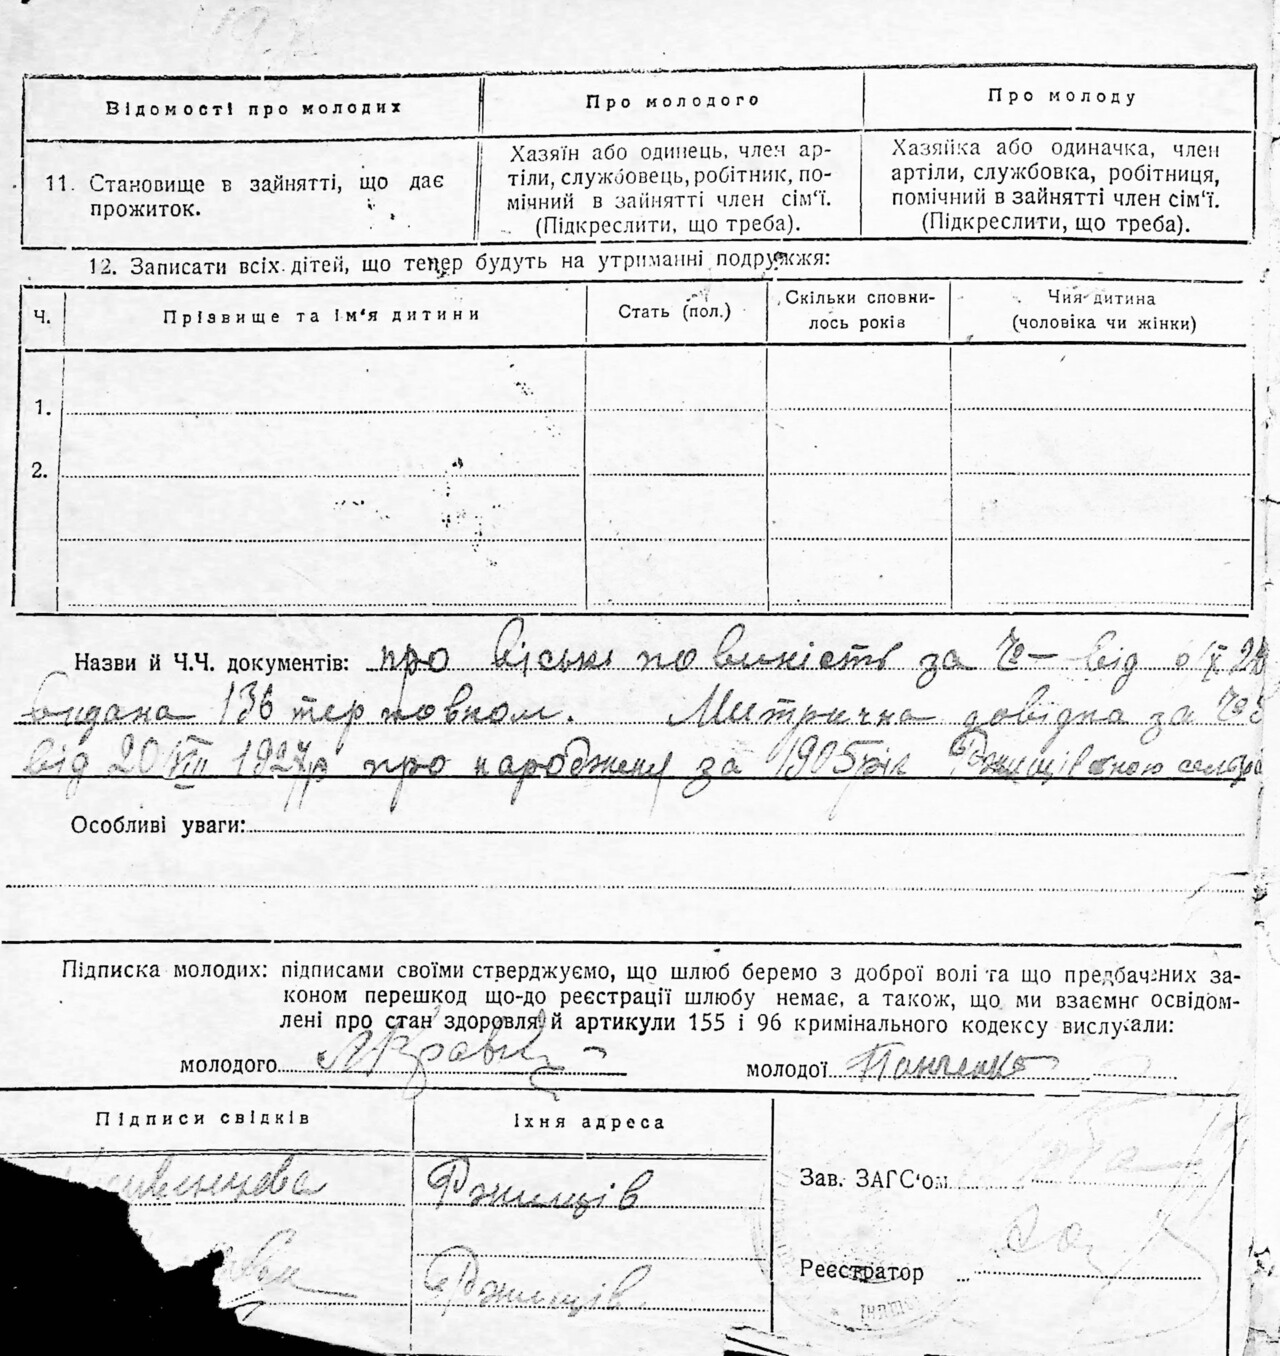 Відомості про молодих
Про молодого
Про молоду
11. Становище в зайнятті, що дає
прожиток.
Хазяїн або одинець, член ар-
тіли, службовець, робітник, по-
мічний в зайнятті член сім'ї.
(Підкреслити, що треба).
Хазяйка або одиначка, член
артіли, службовка, робітниця,
помічний в зайнятті член сім'ї.
(Підкреслити, що треба).
12. Записати всіх дітей, що тепер будуть на утриманні подружжя:
Ч.
Прізвище та ім'я дитини
Стать (пол.)
Скільки сповни-
лось років
Чия дитина
(чоловіка чи жінки)
1.
2.
Назви й Ч.Ч. документів: про військ повиність за № — від
видана 136 тер повком. Метрична довідка за №
від 20/VIII 1927р про народженя за 1905 рік Ржищівською
Особливі уваги:
Підписка молодих: підписами своїми стверджуємо, що шлюб беремо з доброї волі та що предбачених за-
коном перешкод що-до реєстрації шлюбу немає, а також, що ми взаємне освідом-
лені про стан здоровля й артикули 155 і 96 кримінального кодексу вислухали:
молодого
молодої Панченко
Підписи свідків
Їхня адреса
Ржищів
Ржищів
Зав. ЗАГС'ом
Реєстратор